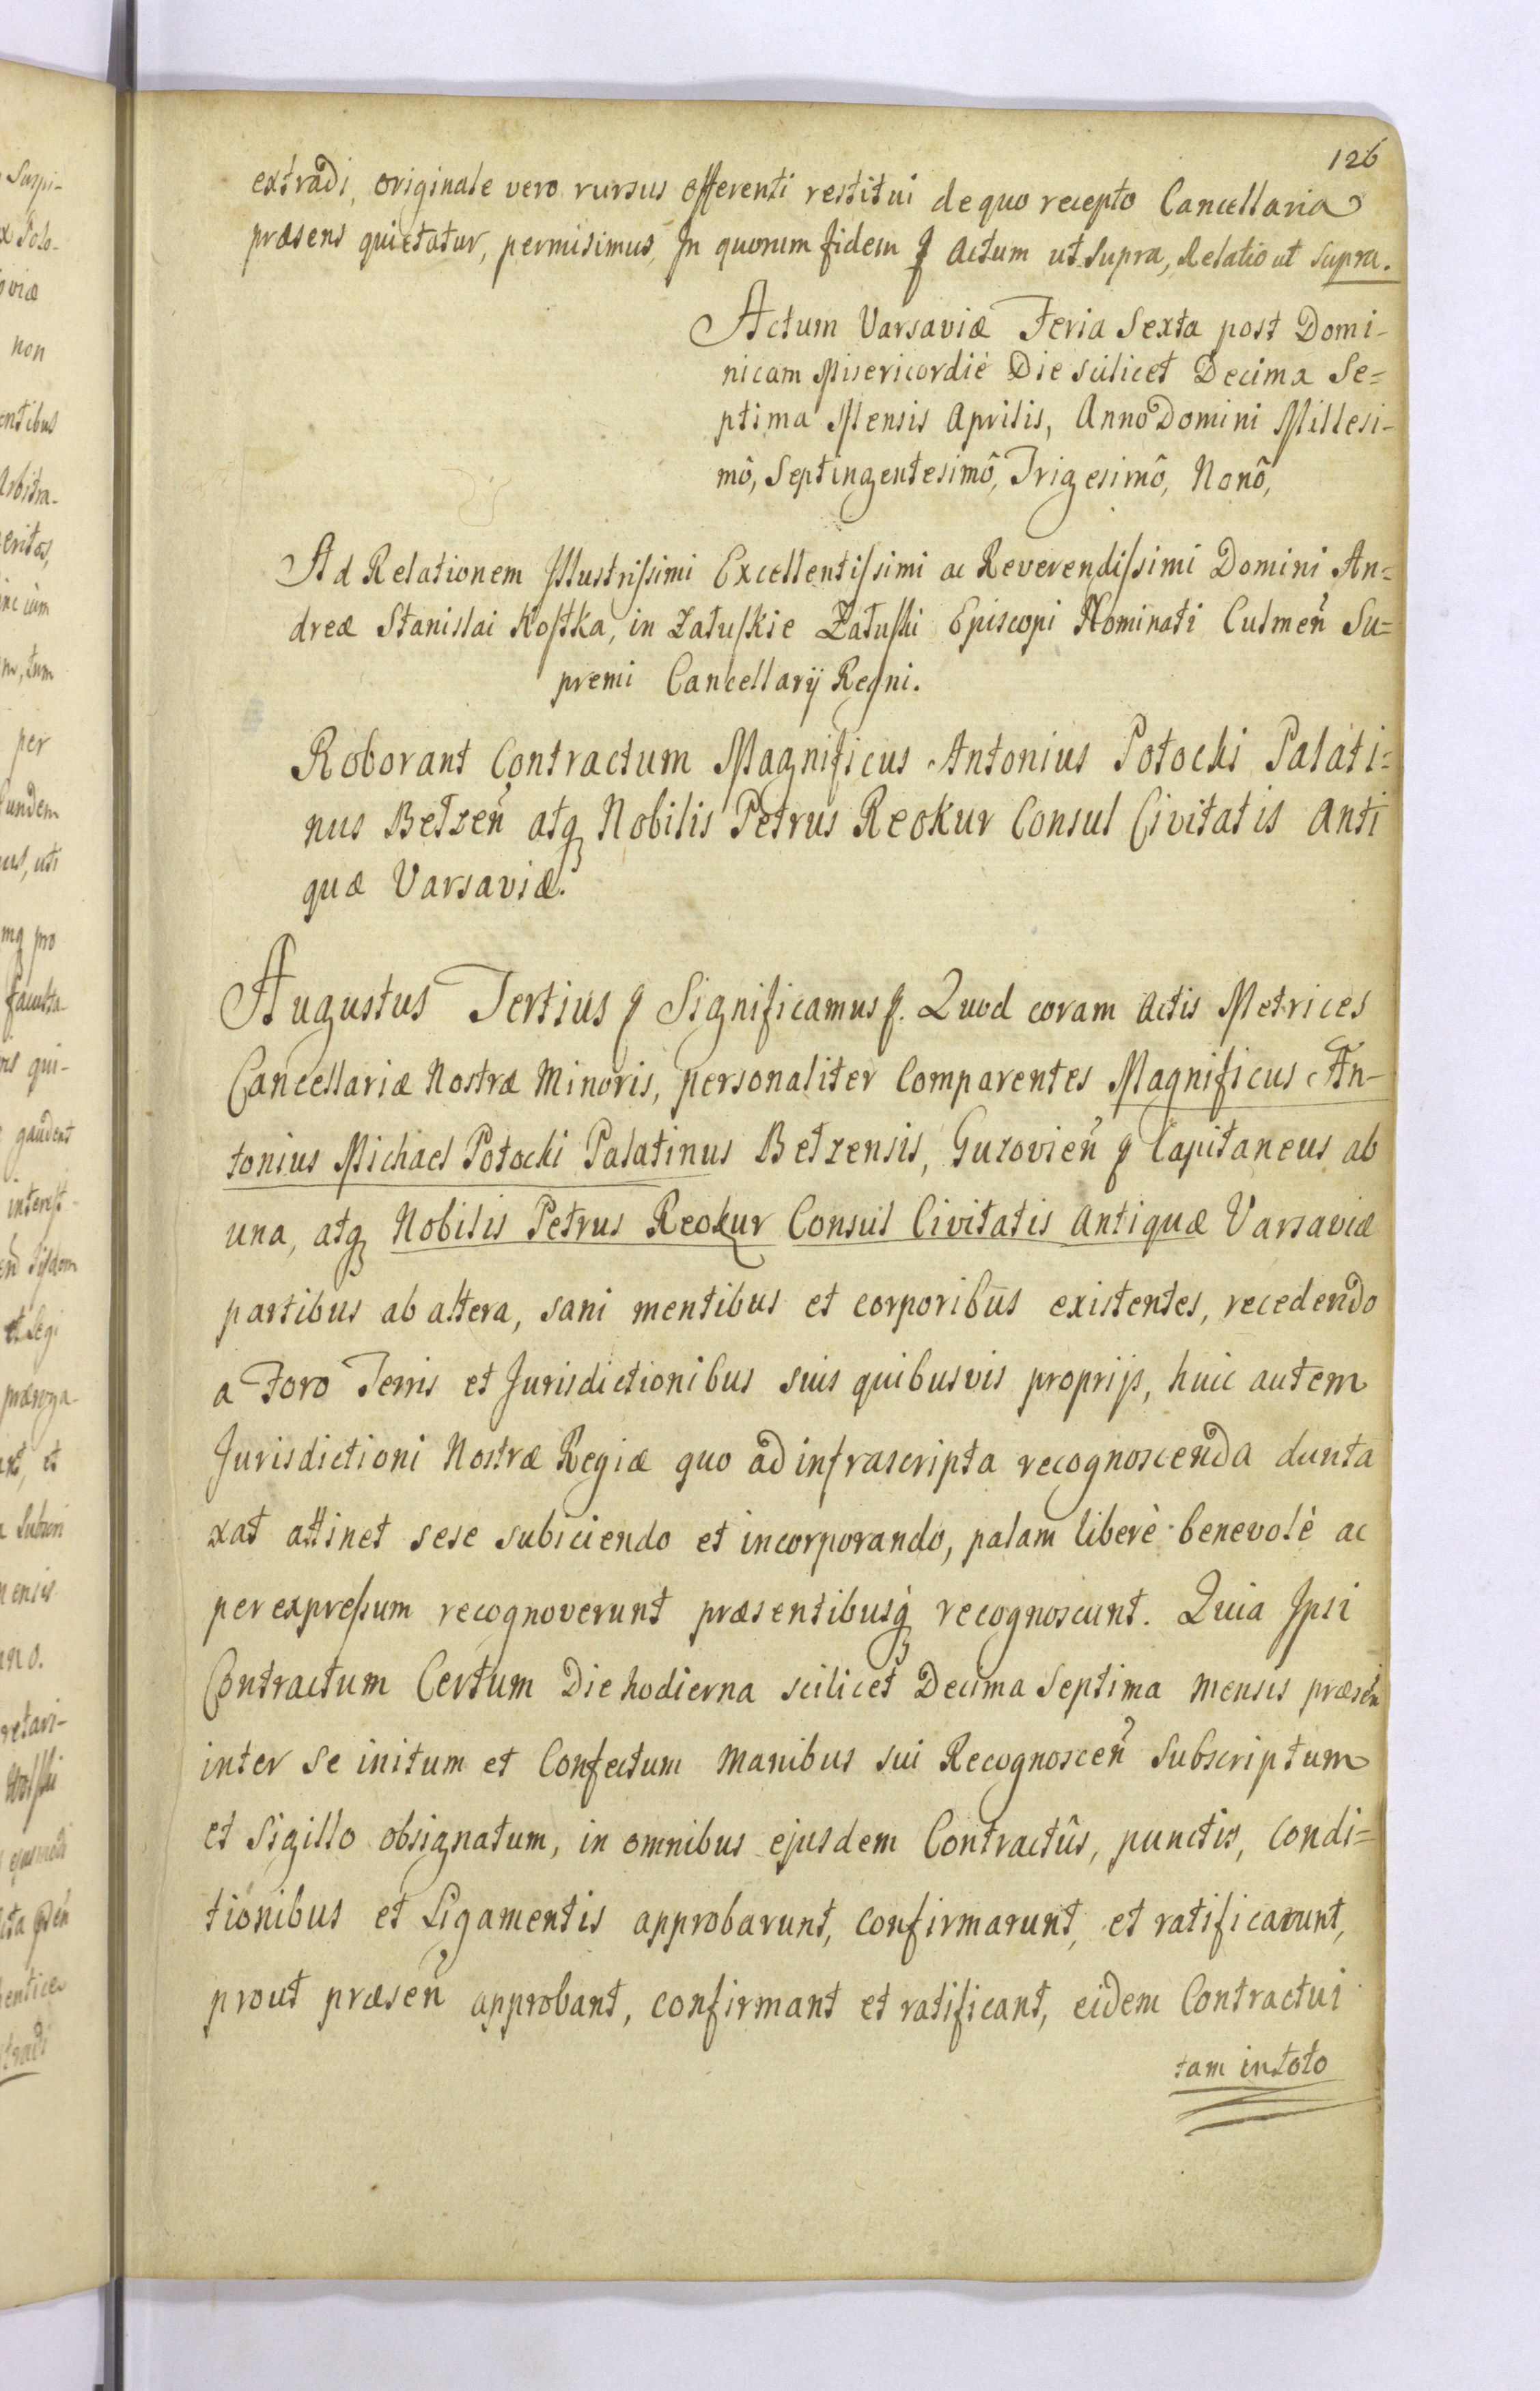 126
extradi, originale vero rursus offerenti restitui de quo recepto Cancellaria
præsens quietatur, permisimus, In quorum fidem ꝭ Actum ut supra, Relatio ut supra.
Actum Varsaviæ Feria Sexta post Domi-
nicam Misericordiè Die scilicet Decima Se=
ptima Mensis Aprilis, Anno Domini Millesi-
mô, Septingentesimô, Trigesimô, Nonô,
Ad Relationem Illustrissimi Excellentissimi ac Reverendissimi Domini An=
dreæ Stanislai Kostka, in Załuskie Załuski Episcopi Nominati Culmeñ Su=
premi Cancellarij Regni.
Roborant Contractum Magnificus Antonius Potocki Palati=
nus Belzeñ atq Nobilis Petrus Reokur Consul Civitatis Anti
quæ Varsaviæ.
Augustus Tertius ꝭ Significamus ꝭ. Quod coram Actis Metrices
Cancellariæ Nostræ Minoris, personaliter Comparentes Magnificus An-
tonius Michael Potocki Palatinus Belzensis, Guzovieñ ꝭ Capitaneus ab
una, atq Nobilis Petrus Reokur Consul Civitatis Antiquæ Varsaviæ
partibus ab altera, sani mentibus et corporibus existentes, recedendo
a Foro Terris et Jurisdictionibus suis quibusvis proprijs, huic autem
Jurisdictioni Nostræ Regiæ quo ad infrascripta recognoscenda dunta
xat attinet sese subiciendo et incorporando, palam liberè benevolè ac
per expressum recognoverunt præsentibusq recognoscunt. Quia Ipsi
Contractum Certum Die hodierna scilicet Decima Septima Mensis præsen
inter se initum et Confectum Manibus sui Recognosceñ Subscriptum
et Sigillo obsignatum, in omnibus ejusdem Contractûs, punctis, Condi=
tionibus et Ligamentis approbarunt, confirmarunt, et ratificarunt,
prout præseñ approbant, confirmant et ratificant, eidem Contractui
tam in toto